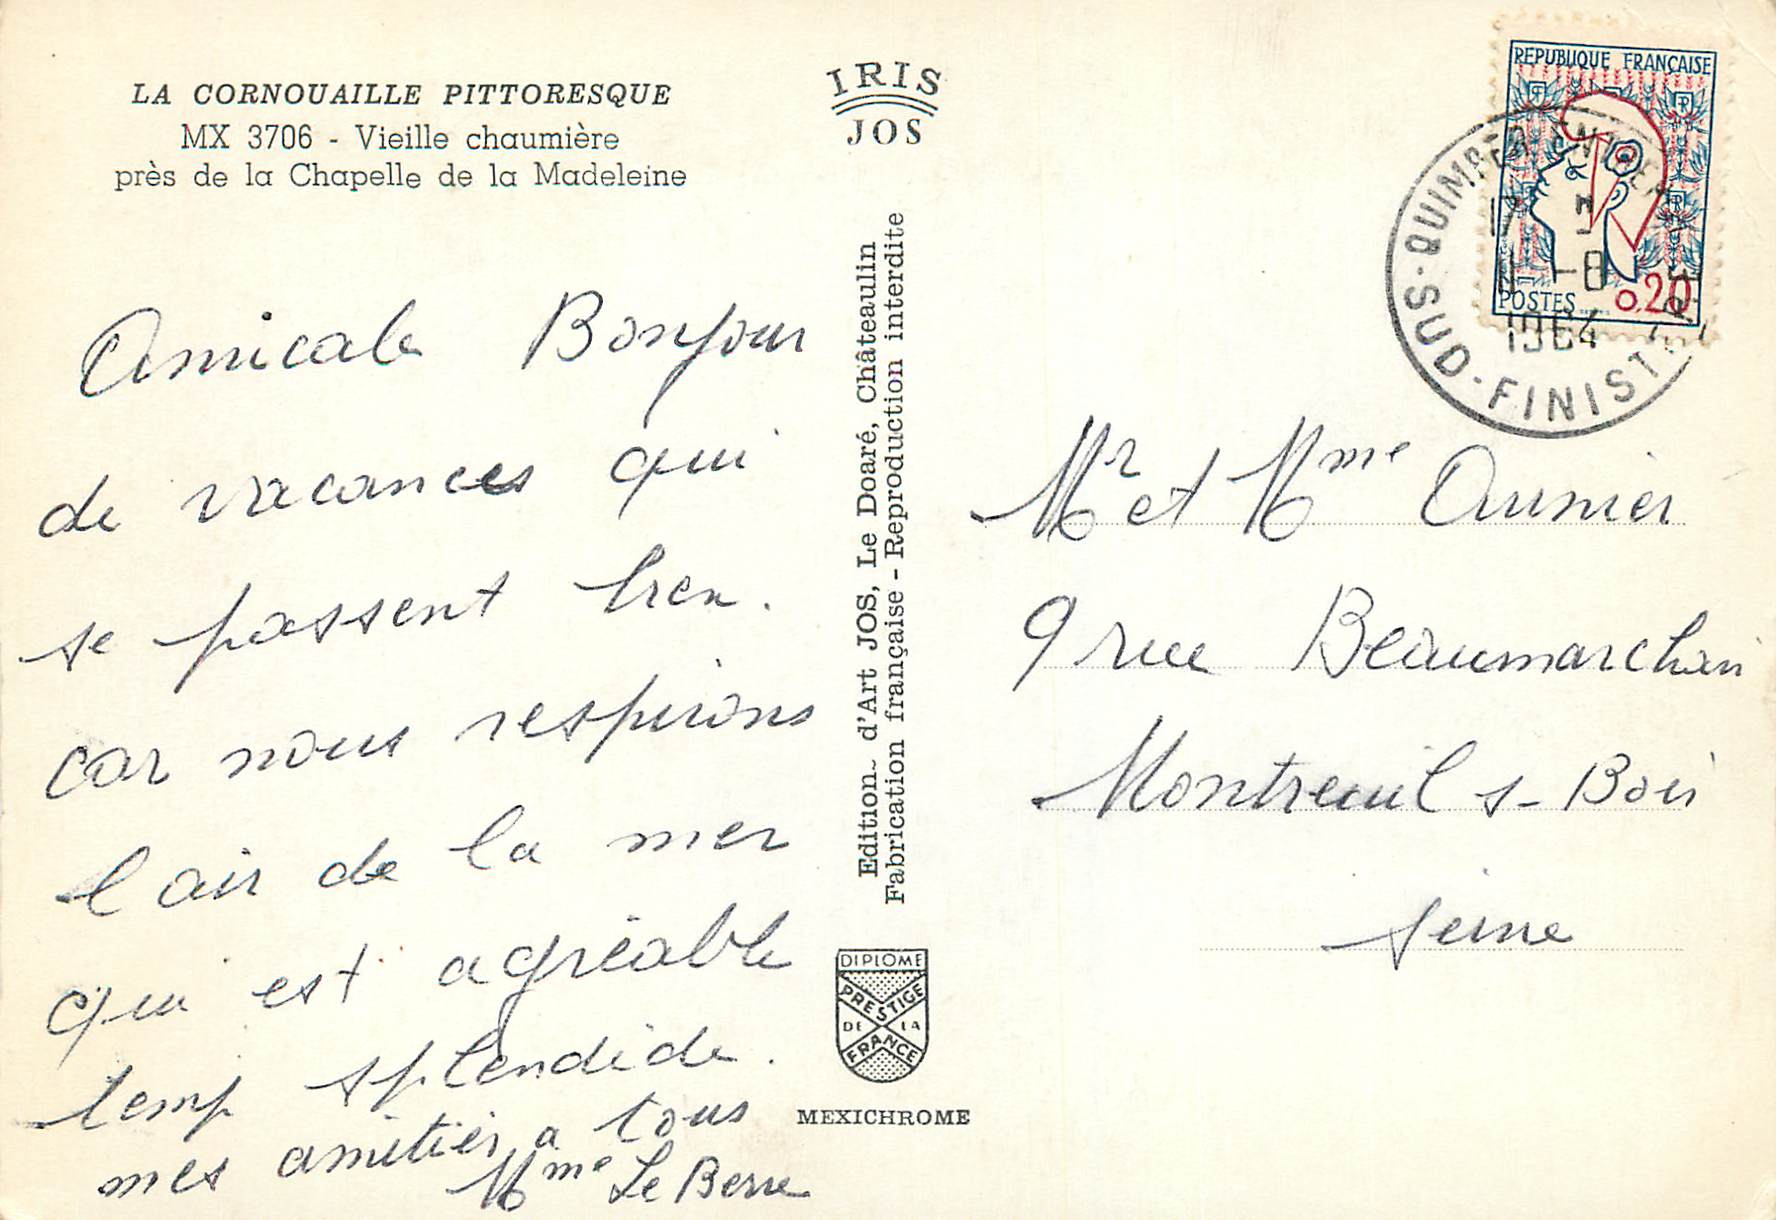 LA CORNOUAILLE PITTORESQUE
MX 3706 - Vieille chaumière
près de la Chapelle de la Madeleine
Amicale Bonjour
de vacances qui
se passent bien.
car nous respirons
l air de la mer
qui est agréable
temp splendide.
mes amitiés a tous
Mme Le Berre
IRIS
JOS
Edition d'Art JOS, Le Doaré, Châteaulin
Fabrication française - Reproduction interdite
DIPLOME
PRESTIGE
DE LA
FRANCE
MEXICHROME
REPUBLIQUE FRANÇAISE
POSTES 0,20
QUIMPER
1964
SUD-FINIST
Mr et Mme
9 rue Beaumarchais
Montreuil s- Bois
Seine